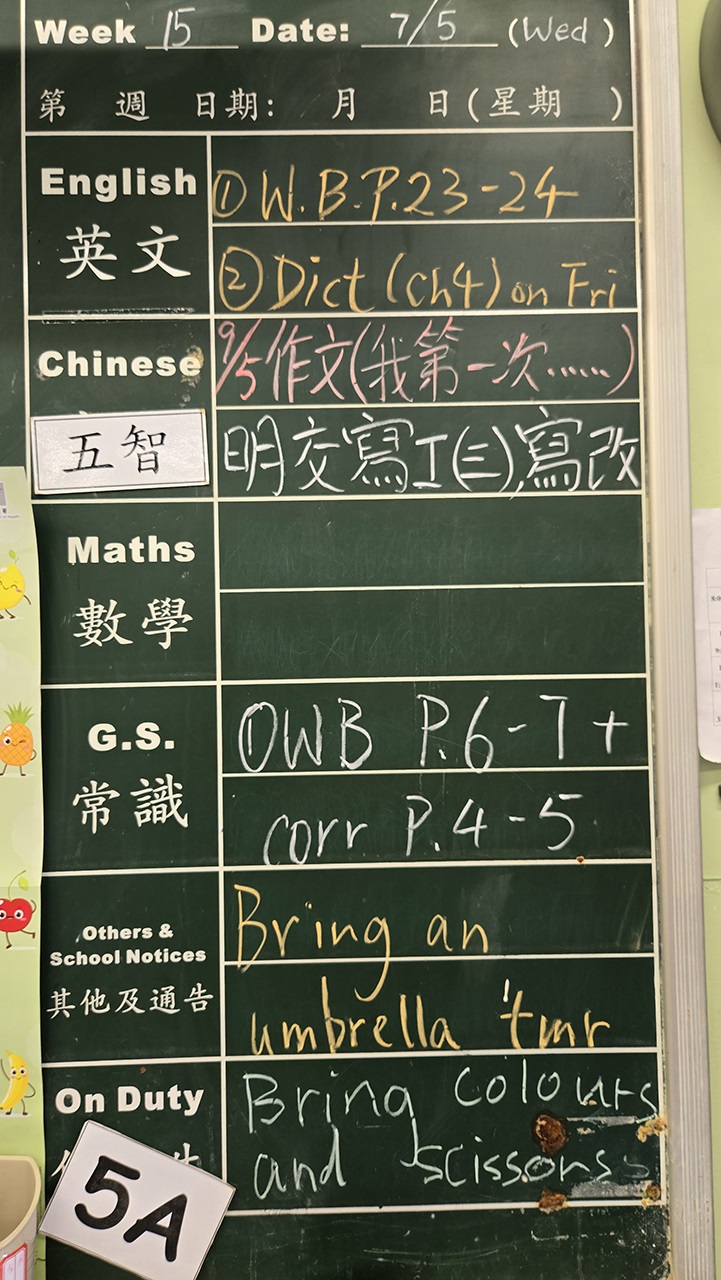 Week 15 Date: 7/5 (Wed)
第 週 日期: 月 日(星期 )
English
英文
① W.B.P.23-24
② Dict (Ch4) on Fri
Chinese
9/5 作文(我第一次......)
五智
明交寫工(三),寫改
Maths
數學
G.S.
常識
① WB P.6-7 +
corr P.4-5
Others &
School Notices
其他及通告
Bring an
umbrella tmr
On Duty
Bring colours
and scissors
5A